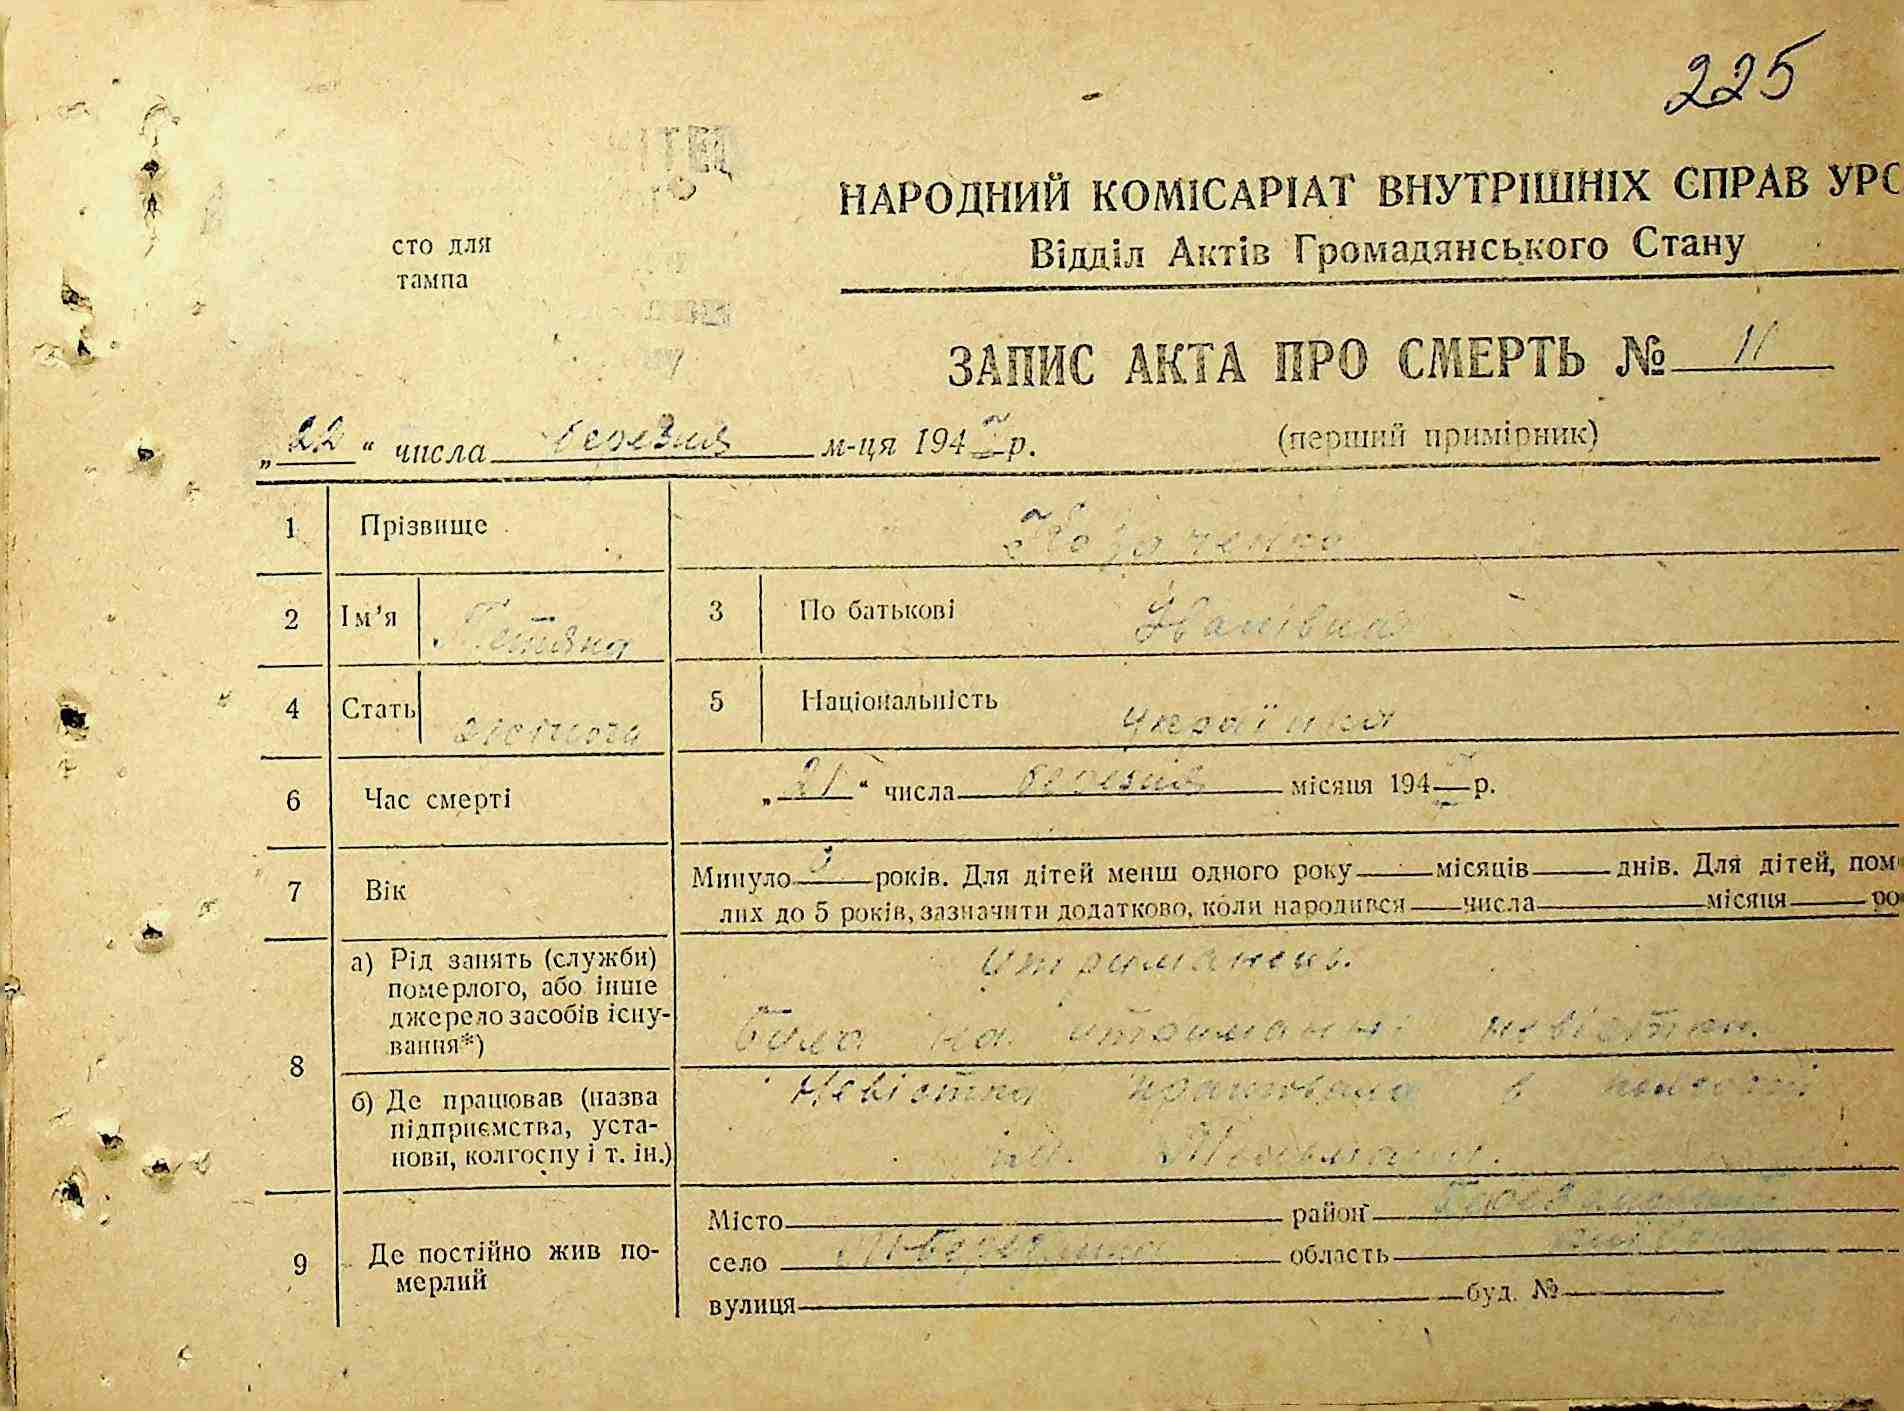 225
НАРОДНИЙ КОМІСАРІАТ ВНУТРІШНІХ СПРАВ УРС
сто для
тампа
Відділ Актів Громадянського Стану
ЗАПИС АКТА ПРО СМЕРТЬ № 11
„22“ числа березня м-ця 194 р.
(перший примірник)
1 Прізвище
2 Ім’я Тетяна 3 По батькові Іванівна
4 Стать жіноча 5 Національність українка
6 Час смерті „21“ числа березня місяця 194 р.
7 Вік
Минуло років. Для дітей менш одного року місяців днів. Для дітей, пом
лих до 5 років, зазначити додатково, коли народився числа місяця ро
8
а) Рід занять (служби)
померлого, або інше
джерело засобів існу-
вання*)
утриманець.
Була на утриманні невістки.
б) Де працював (назва
підприємства, уста-
нови, колгоспу і т. ін.)
Невістка працювала в
ім.
9 Де постійно жив по-
мерлий
Місто район
село область
вулиця буд. №